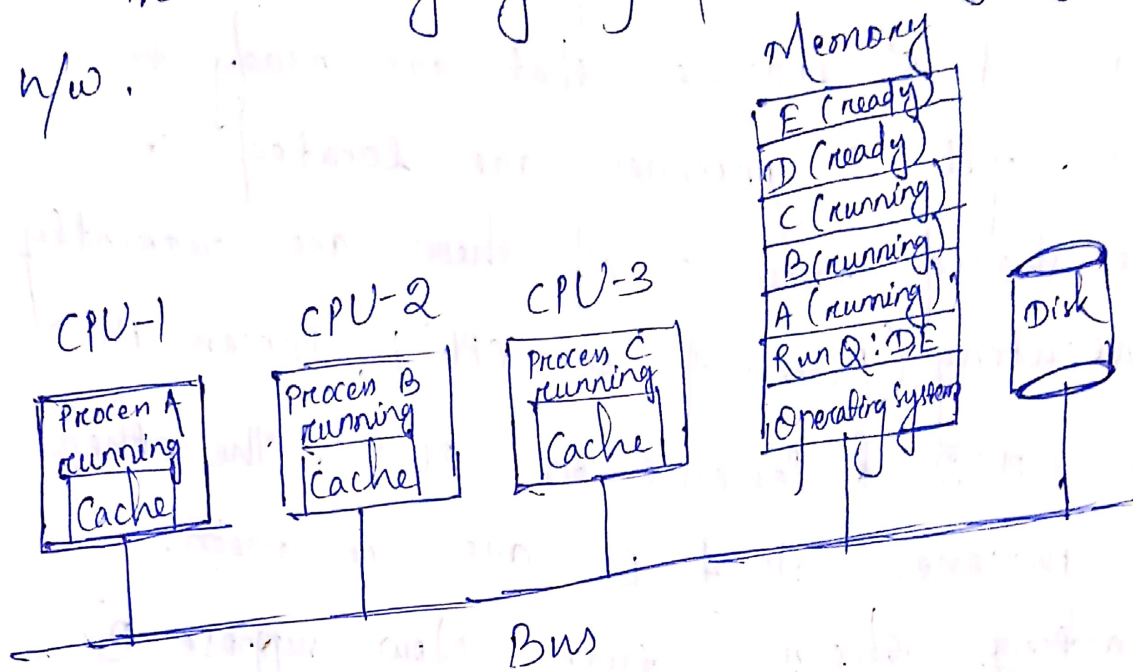 n/w.
Memory
E (ready)
D (ready)
C (running)
B (running)
A (running)
Run Q: DE
Operating system
CPU-1
Process A
running
Cache
CPU-2
Process B
running
Cache
CPU-3
Process C
running
Cache
Disk
Bus